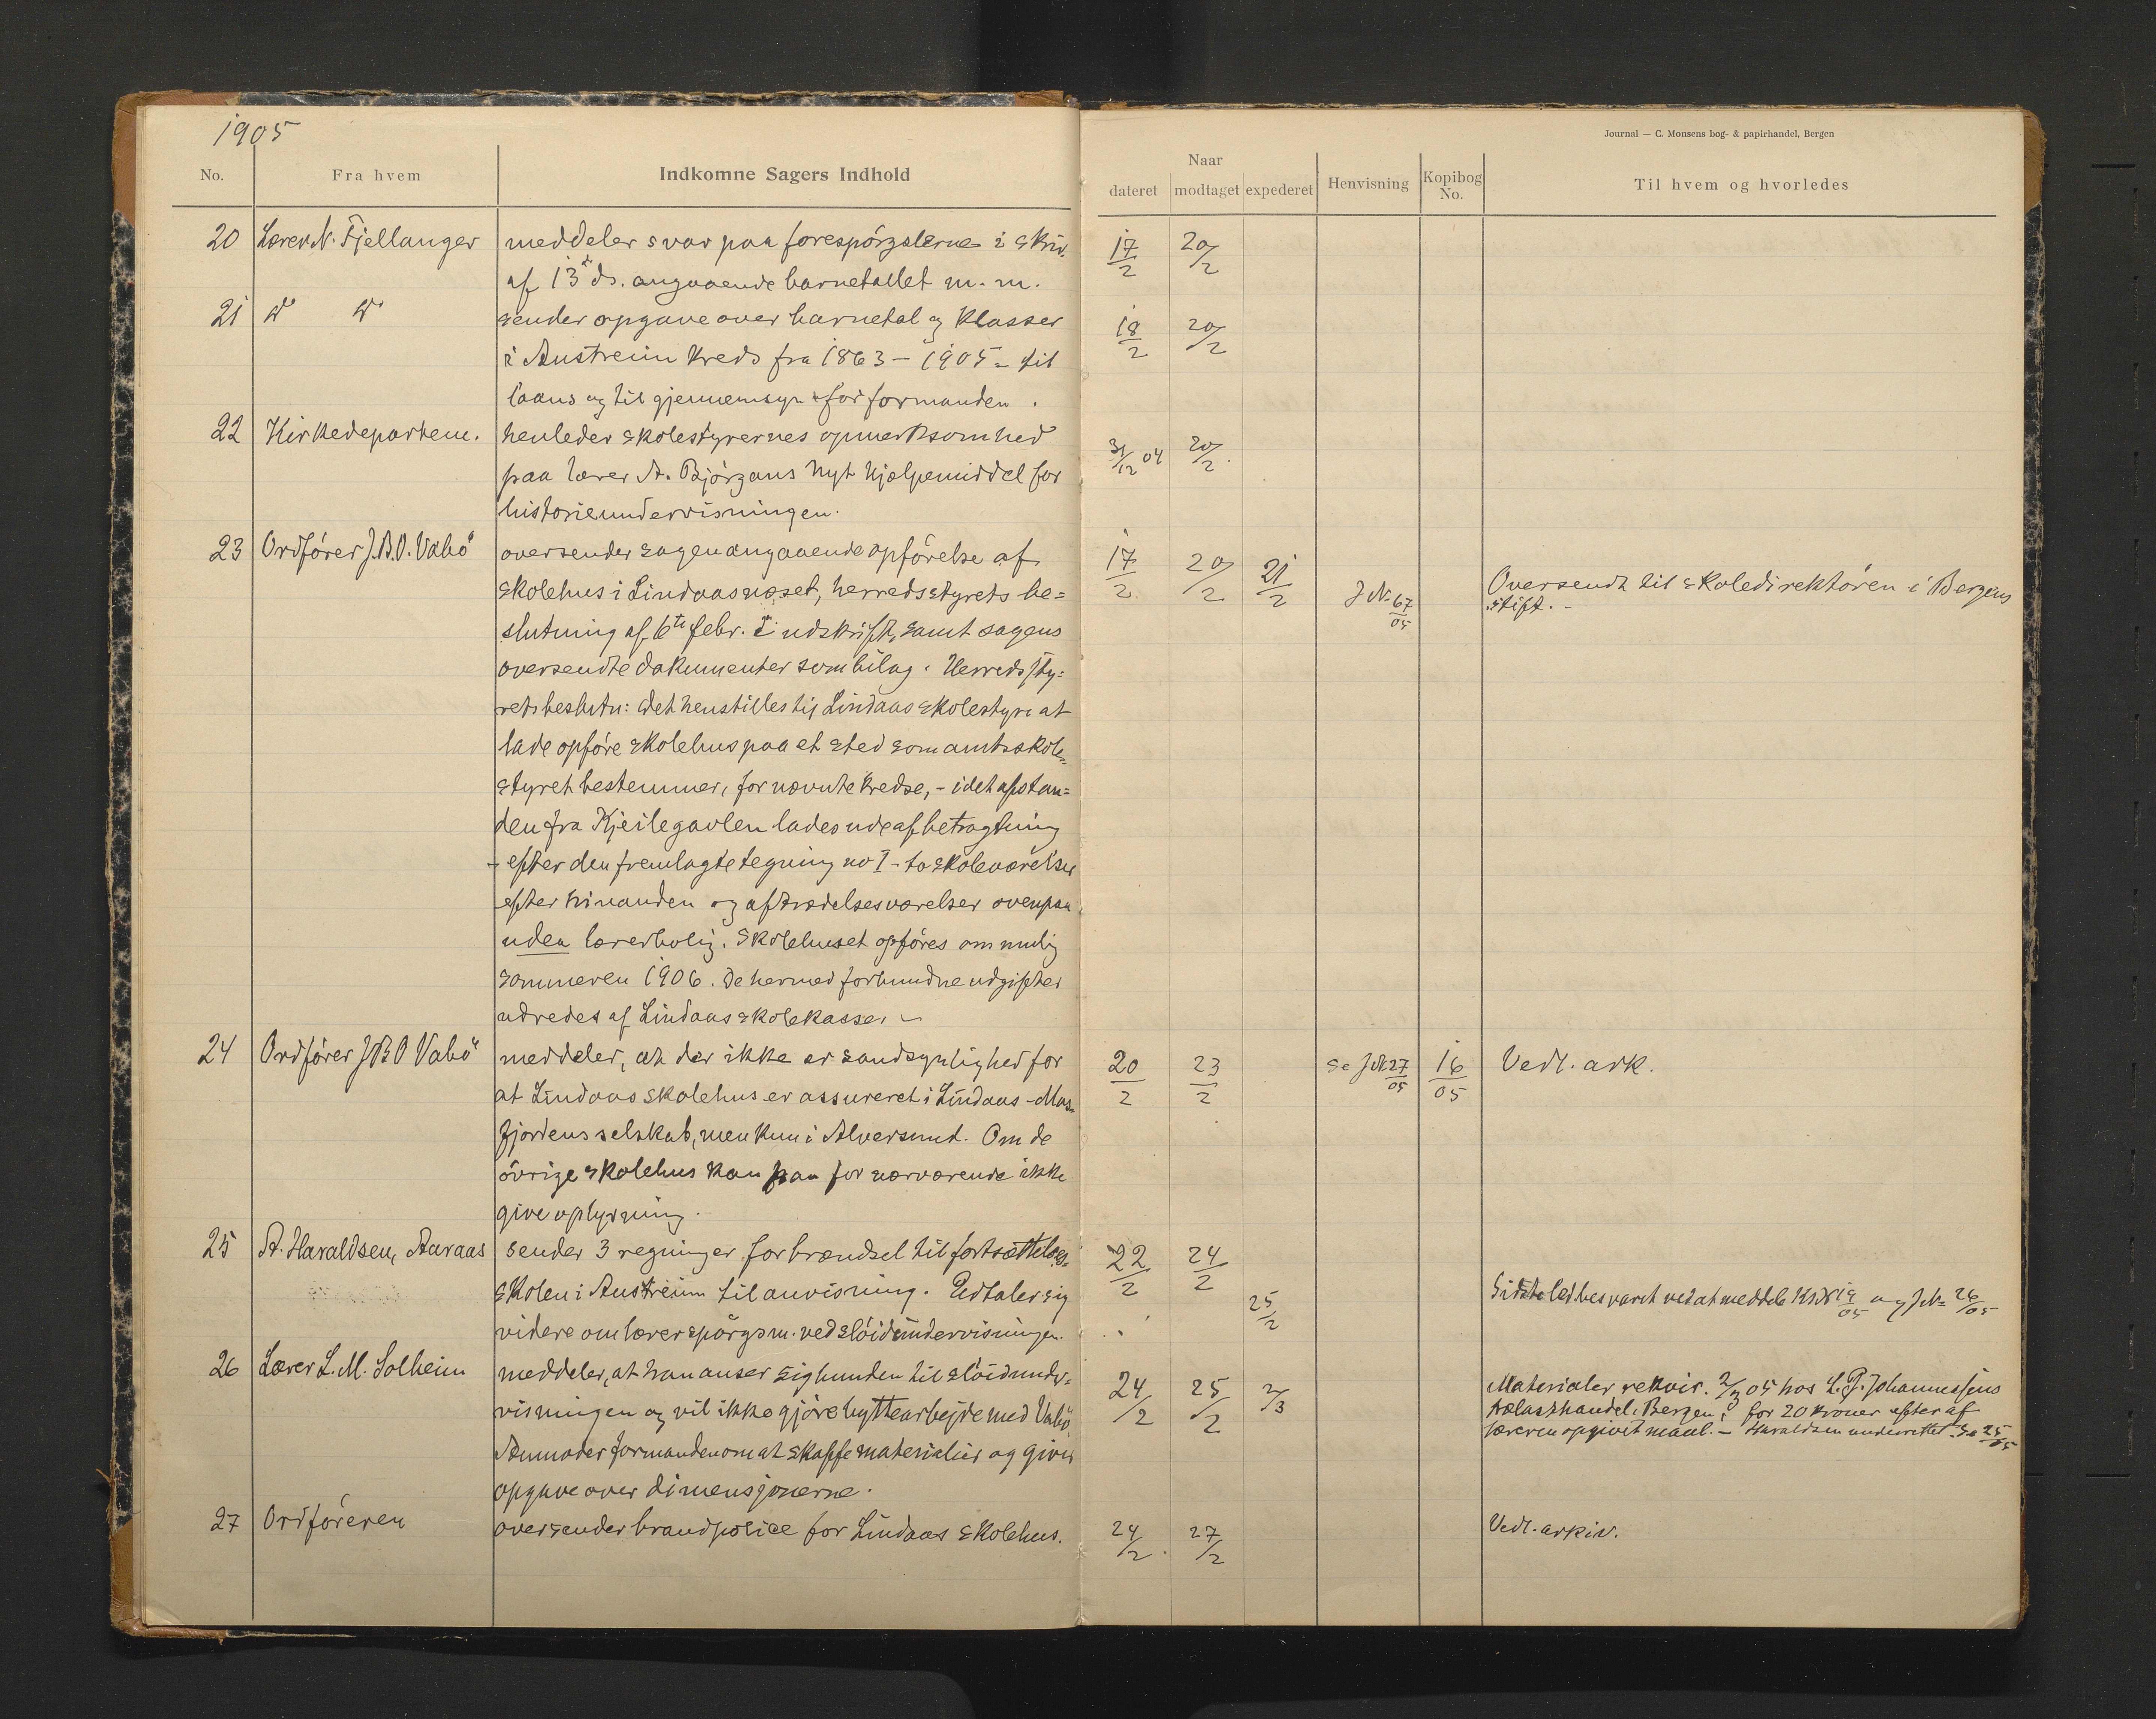 1905
No.
Fra hvem
Indkomne Sagers Indhold
20 Lærer N. Fjellanger meddeler svar paa forespørgslerne i skriv.
af 13de ds. angaaende barnetallet m. m.
21 do do sender opgave over barnetal og klasser
i Austreim kreds fra 1863 – 1905 – til
laans og til gjennemsyn for formanden.
22 Kirkedepartem. henleder skolestyrernes opmerksomhed
paa lærer A. Bjørgans nyt hjælpemiddel for
historieundervisningen.
23 Ordfører J.B.O. Vabø oversender sagen angaaende opførelse af
skolehus i Lindaasnæset, herredsstyrets be=
slutning af 6te febr. i udskrift, samt sagens
oversendte dokumenter som bilag. Herredssty=
rets beslutn: Det henstilles til Lindaas skolestyre at
lade opføre skolehus paa et sted som amtsskole=
styret bestemmer, for nævnte kredse, – idet afstan=
den fra Kjeilegavlen lades ude af betragtning
– efter den fremlagte tegning no I – to skoleværelser
efter hinanden og aftrædelsesværelser ovenpaa
uden lærerbolig. Skolehuset opføres om mulig
sommeren 1906. De hermed forbundne udgifter
udredes af Lindaas skolekasse. –
24 Ordfører J B O Vabø meddeler, at der ikke er sandsynlighed for
at Lindaas skolehus er assureret i Lindaas – Mas=
fjordens selskab, men kun i Alversund. Om de
øvrige skolehus kan han for nærværende ikke
give oplysning.
25 A. Haraldsen, Aaraas sender 3 regninger for brændsel til fortsættelses=
skolen i Austreim til anvisning. Udtaler sig
videre om lærerspørgsm. ved sløidundervisningen.
26 Lærer L. M. Solheim meddeler, at han anser sig bunden til sløidunder=
visningen og vil ikke gjøre byttearbejde med Vabø.
Anmoder formanden om at skaffe materialier og giver
opgave over dimensjonerne.
27 Ordføreren oversender brandpolice for Lindaas skolehus.
Journal — C. Monsens bog- & papirhandel, Bergen
Naar
dateret modtaget expederet Henvisning Kopibog No. Til hvem og hvorledes
17/2 20/2
18/2 20/2
31/12 04 20/2.
17/2 20/2 21/2 J N. 67/05 Oversendt til skoledirektøren i Bergens
stift. –
20/2 23/2 Se J N 27/05 16/05 Vedl. ark.
22/2 24/2
25/2 Sidste led besvaret ved at meddele 19/05 og J N= 26/05
24/2 25/2 2/3 Materialer rekvir. 2/3 05 hos L. P. Johannessens
trælasthandel, Bergen, for 20 kroner efter af
læreren opgivet maal. – Haraldsen underrettet. Se 25/05
24/2. 27/2 Vedl. arkiv.